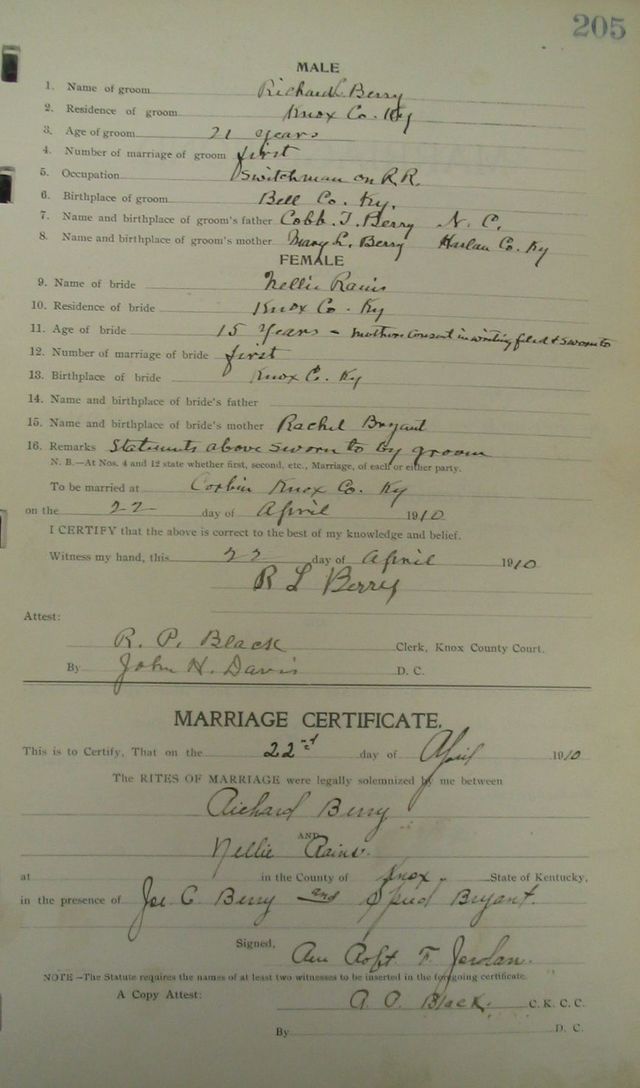 205
MALE
1. Name of groom Richard L. Berry
2. Residence of groom Knox Co. Ky
3. Age of groom 21 years
4. Number of marriage of groom first
5. Occupation Switchman on R.R.
6. Birthplace of groom Bell Co. Ky.
7. Name and birthplace of groom's father Cobb. T. Berry N. C.
8. Name and birthplace of groom's mother Mary L. Berry Harlan Co. Ky
FEMALE
9. Name of bride Nellie Rains
10. Residence of bride Knox Co. Ky
11. Age of bride 15 years - mothers consent in writing filed & sworn to
12. Number of marriage of bride first
13. Birthplace of bride Knox C. Ky
14. Name and birthplace of bride's father
15. Name and birthplace of bride's mother Rachel Bryant
16. Remarks Statements above sworn to by groom
N. B.—At Nos. 4 and 12 state whether first, second, etc., Marriage, of each or either party.
To be married at Corbin Knox Co. Ky
on the 22 day of April 1910
I CERTIFY that the above is correct to the best of my knowledge and belief.
Witness my hand, this 22 day of April 1910
R L Berry
Attest:
R. P. Black Clerk, Knox County Court.
By John H. Davis D. C.
MARRIAGE CERTIFICATE.
This is to Certify, That on the 22nd day of April 1910
The RITES OF MARRIAGE were legally solemnized by me between
Richard Berry
AND
Nellie Rains.
at in the County of Knox State of Kentucky,
in the presence of Joe C Berry and Bryant.
Signed,
NOTE—The Statute requires the names of at least two witnesses to be inserted in the foregoing certificate.
A Copy Attest: Black C. K. C. C.
By D. C.